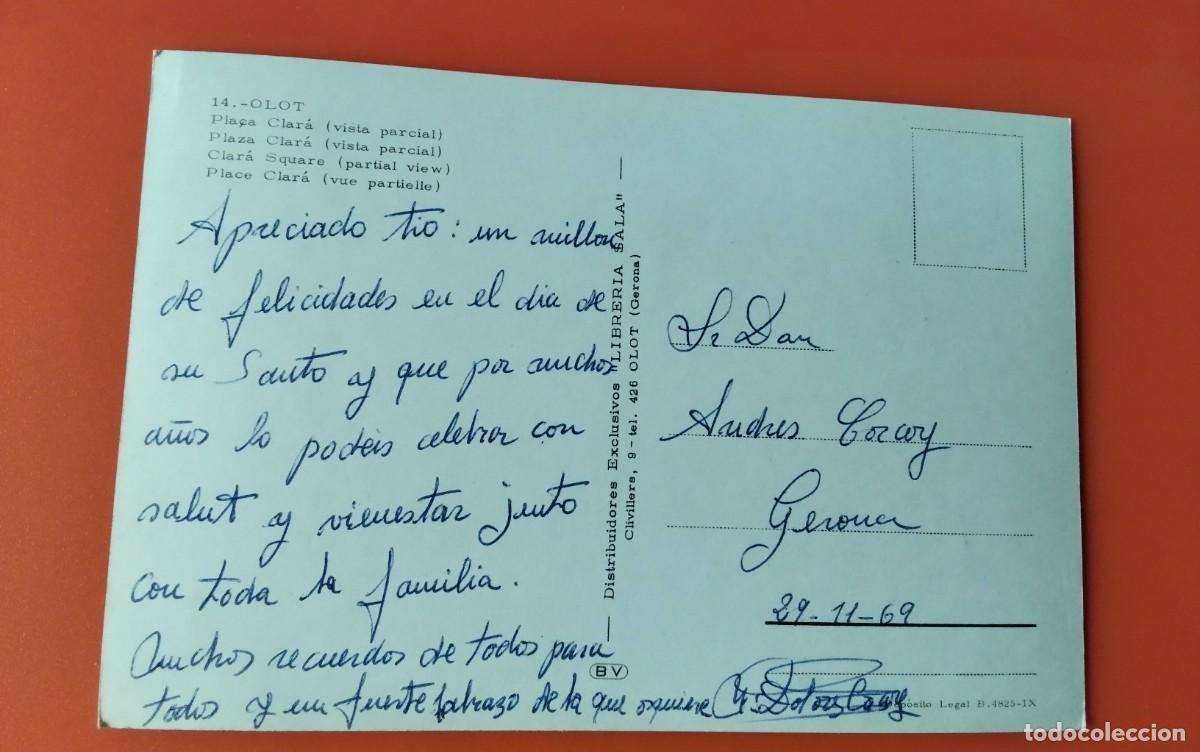 14.-OLOT
Plaça Clará (vista parcial)
Plaza Clará (vista parcial)
Clará Square (partial view)
Place Clará (vue partielle)
Apreciado tio: un millon
de felicidades en el dia de
su Santo y que por muchos
años lo podéis celebrar con
salut y vienestar junto
con toda la familia.
Muchos recuerdos de todos para
todos y un fuerte abrazo de la que os quiere
Distribuidores Exclusivos "LIBRERIA SALA"
Clivillers, 9 - tel. 426 OLOT (Gerona)
BV
Sr Don
Andres Corcoy
Gerona
29-11-69
Depósito Legal B.4825-IX
todocoleccion